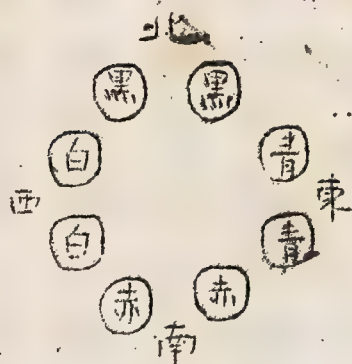 北
黑 黑
白 青
西 東
白 青
赤 赤
南